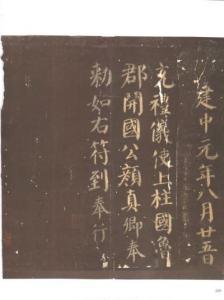 建中元年八月廿五日
充禮儀使上柱國魯
郡開國公顏真卿奉
勅如右符到奉行